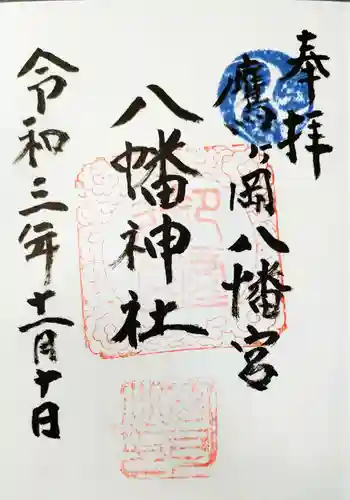 奉拝
鷹岡八幡宮
八幡神社
令和三年十一月十日